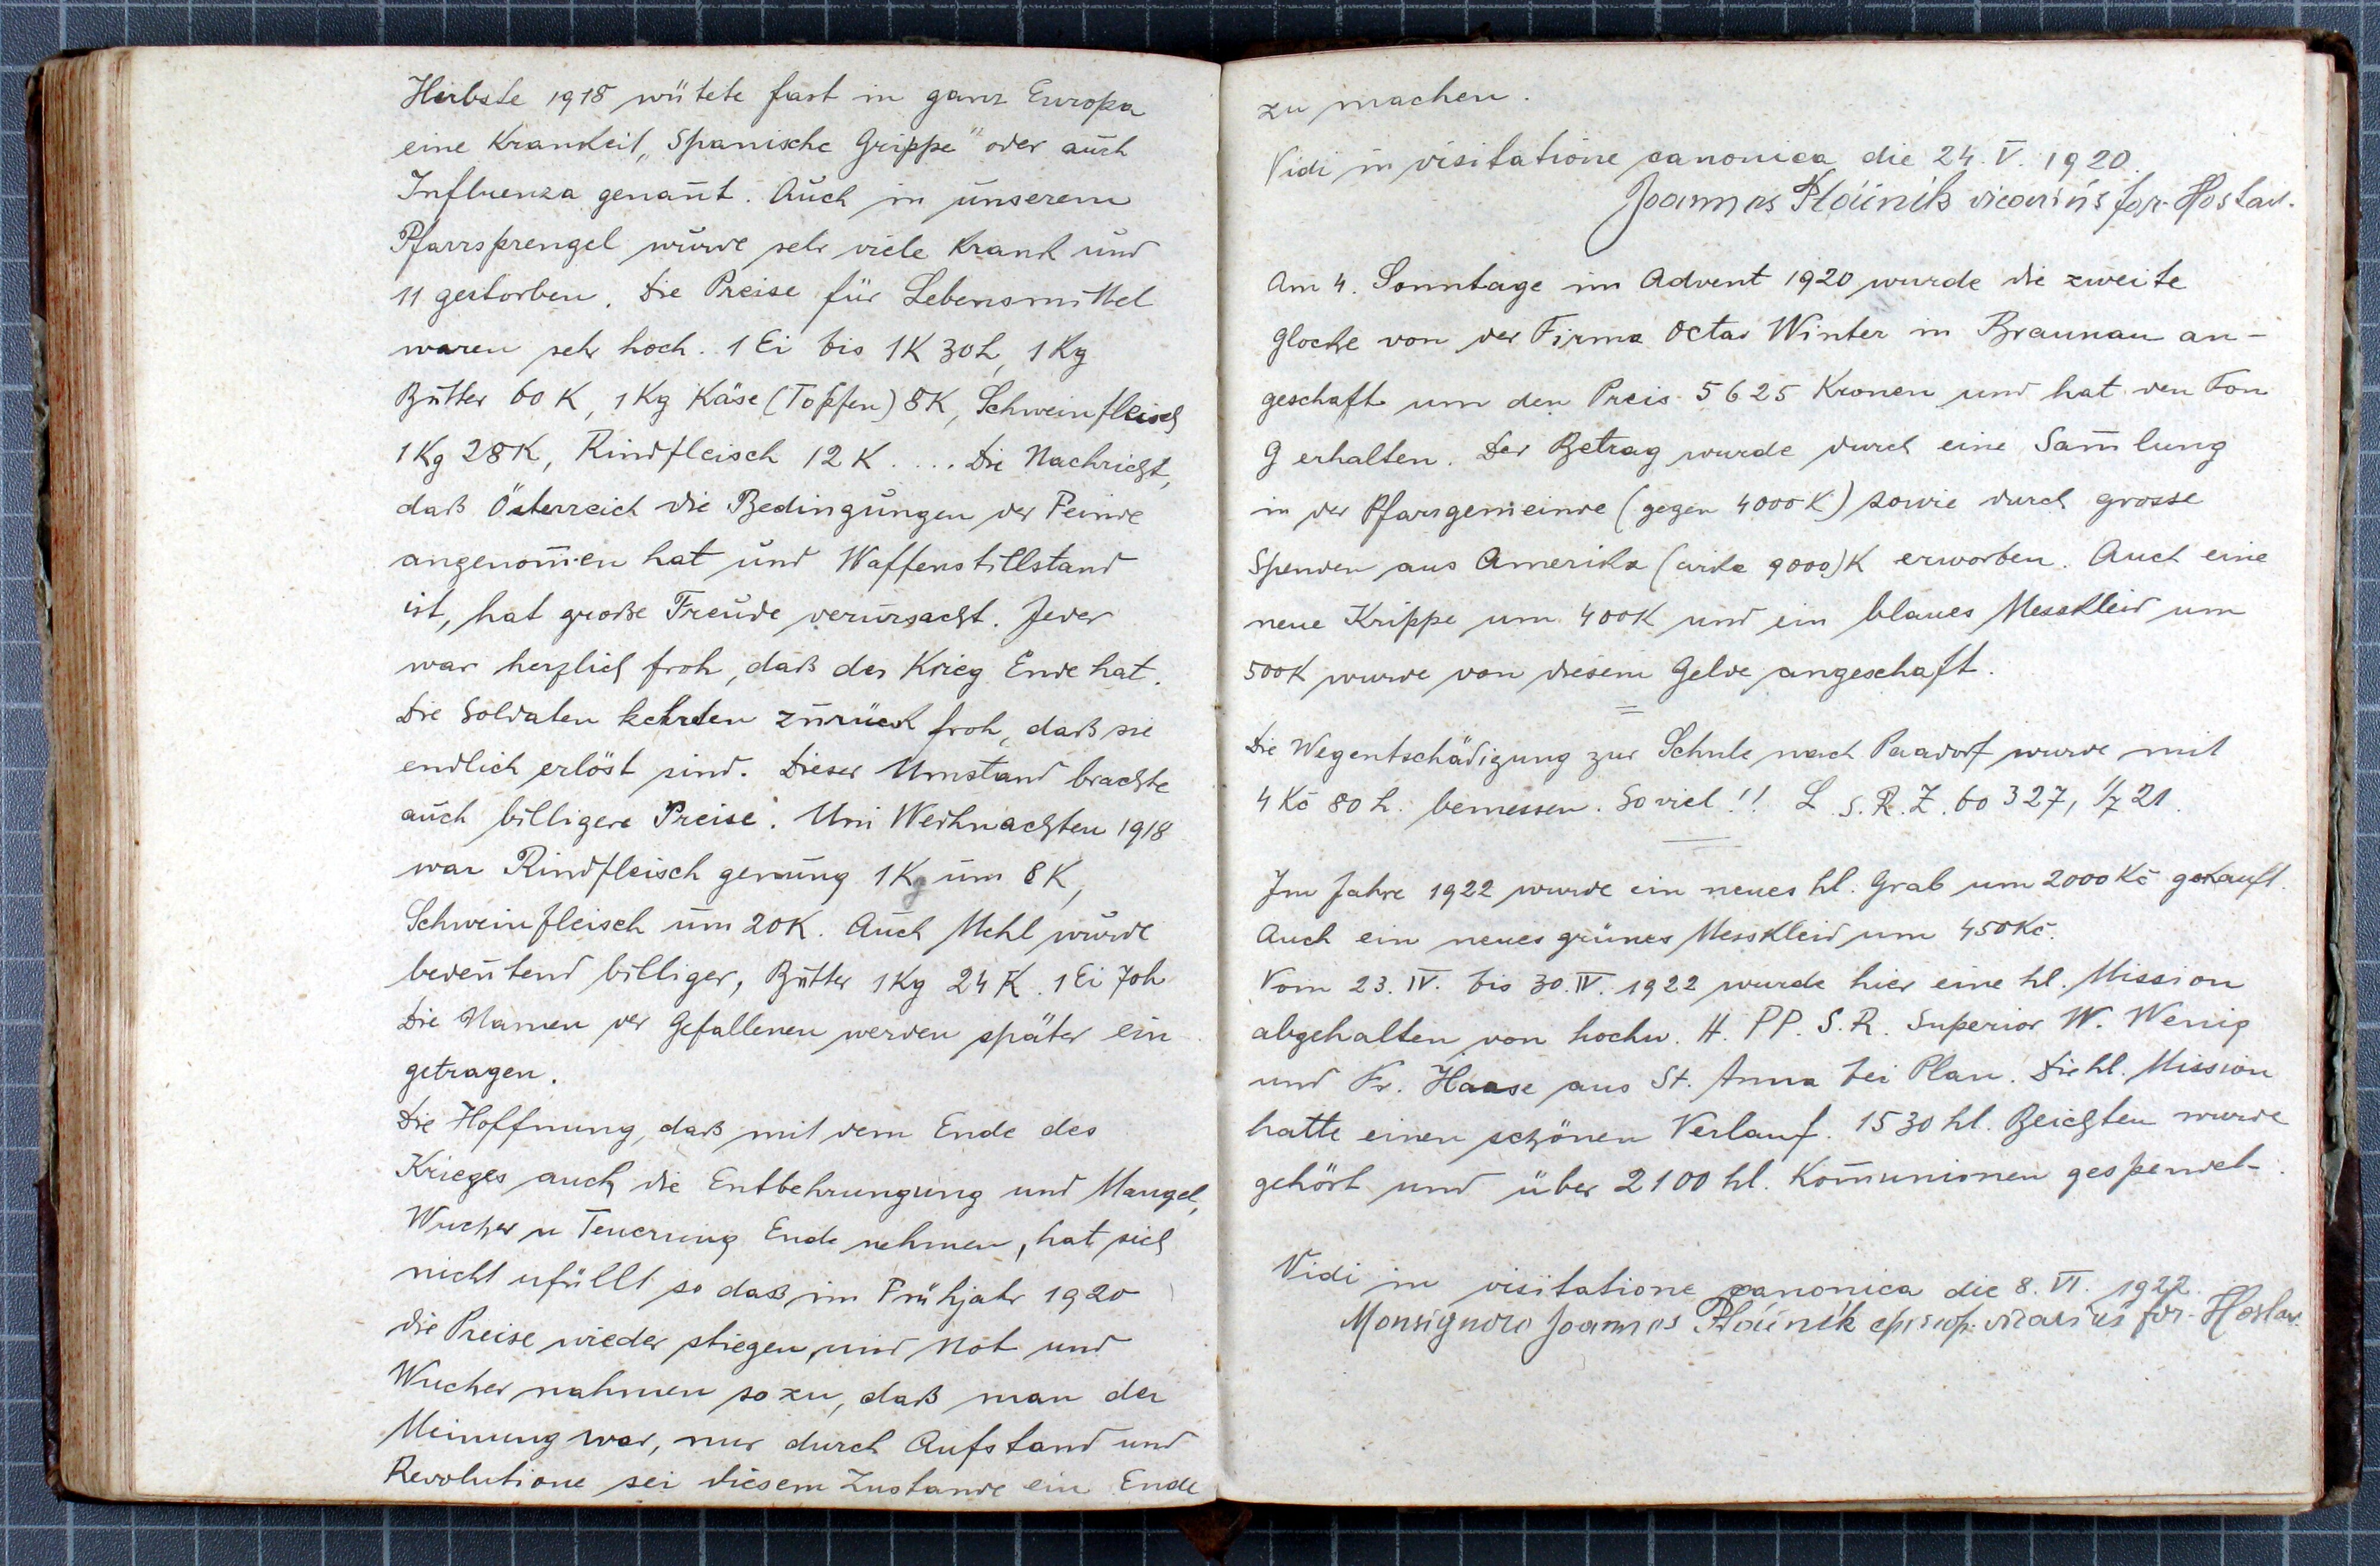 Herbste 1918 wütete fast in ganz Europa
eine Krankeit „Spanische Grippe" oder auch
Influenza genannt. Auch in unserem
Pfarrsprengel wurde sehr viele Krank und
11 gestorben. Die Preise für Lebensmittel
waren sehr hoch. 1 Ei bis 1K 30h, 1 Kg
Butter 60 K, 1 Kg Käse (Topfen) 8K, Schweinfleisch
1 Kg 28K, Rindfleisch 12 K.... Die Nachricht,
daß Österreich die Bedingungen der Feinde
angenom̄en hat und Waffenstillstand
ist, hat große Freude verursacht. Jeder
war herzlich froh, daß der Krieg Ende hat.
Die Soldaten kehrten zurück froh, daß sie
endlich erlöst sind. Dieser Umstand brachte
auch billigere Preise. Um Weihnachten 1918
war Rindfleisch genung 1 Kg um 8 K,
Schweinfleisch um 20K. Auch Mehl wurde
bedeutend billiger, Butter 1 Kg 24 K. 1 Ei 70h
Die Namen der Gefallenen werden später ein
getragen.
Die Hoffnung, daß mit dem Ende des
Krieges auch die Entbehrungung und Mangel,
Wucher u Teuerung Ende nehmen, hat sich
nicht erfüllt so daß im Frühjahr 1920
die Preise wieder stiegen, und Not und
Wucher nahmen so zu, daß man der
Meinung war, nur durch Aufstand und
Revolutione sei diesem Zustande ein Ende
zu machen.
Vidi in visitatione canonica die 24. V. 1920.
Joannes vicarius for. Hostav.
Am 4. Sonntage im Advent 1920 wurde die zweite
Glocke von der Firma Octav Winter in Braunau an-
geschaft um den Preis 5625 Kronen und hat den Ton
G erhalten. Der Betrag wurde durch eine Sam̄lung
in der Pfarrgemeinde (gegen 4000 K) sowie durch grosse
Spenden aus Amerika (cirka 9000)K erworben. Auch eine
neue Krippe um 400K und ein blaues Messkleid um
500K wurde von diesem Gelde angeschaft.
Die Wegentschädigung zur Schule nach Paadorf wurde mit
4 Kč 80 h. bemessen. So viel!! L. S. R. Z. 60 327, 1/7 21.
Im Jahre 1922 wurde ein neues hl. Grab um 2000 Kč gekauft.
Auch ein neues grünes Messkleid um 450 Kč.
Vom 23. IV. bis 30. IV. 1922 wurde hier eine hl. Mission
abgehalten von hochw. H. PP. S.R. Superior W. Wenig
und Fr. Haase aus St. Anna bei Plan. Die hl. Mission
hatte einen schönen Verlauf. 1530 hl. Beichten wurde
gehört und über 2100 hl. Kom̄unionen gespendet.
Vidi in visitatione canonica die 8. VI. 1922.
Monsignore Joannes episcop. vicarius for. Hostav.